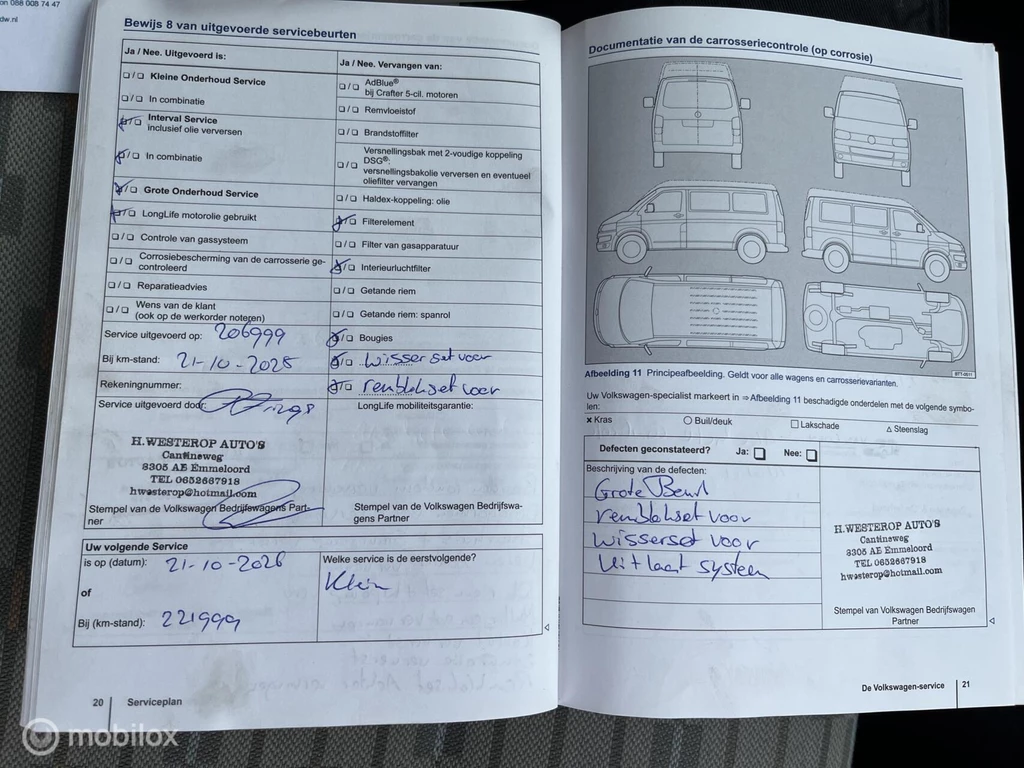 on 088 008 74 47
dw.nl
Bewijs 8 van uitgevoerde servicebeurten
Ja / Nee. Uitgevoerd is:
❑/❑ Kleine Onderhoud Service
❑/❑ In combinatie
❑/❑ Interval Service
inclusief olie verversen
❑/❑ In combinatie
❑/❑ Grote Onderhoud Service
❑/❑ LongLife motorolie gebruikt
❑/❑ Controle van gassysteem
❑/❑ Corrosiebescherming van de carrosserie ge-
controleerd
❑/❑ Reparatieadvies
❑/❑ Wens van de klant
(ook op de werkorder noteren)
Service uitgevoerd op: 206999
Bij km-stand: 21-10-2025
Rekeningnummer:
Service uitgevoerd door:
H.WESTEROP AUTO'S
Cantineweg
8305 AE Emmeloord
TEL 0652667918
hwesterop@hotmail.com
Stempel van de Volkswagen Bedrijfswagens Part-
ner
Ja / Nee. Vervangen van:
❑/❑ AdBlue®
bij Crafter 5-cil. motoren
❑/❑ Remvloeistof
❑/❑ Brandstoffilter
❑/❑ Versnellingsbak met 2-voudige koppeling
DSG®:
versnellingsbakolie verversen en eventueel
oliefilter vervangen
❑/❑ Haldex-koppeling: olie
❑/❑ Filterelement
❑/❑ Filter van gasapparatuur
❑/❑ Interieurluchtfilter
❑/❑ Getande riem
❑/❑ Getande riem: spanrol
❑/❑ Bougies
❑/❑ wisserset voor
❑/❑ remblokset voor
LongLife mobiliteitsgarantie:
Stempel van de Volkswagen Bedrijfswa-
gens Partner
Uw volgende Service
is op (datum): 21-10-2026
of
Bij (km-stand): 221999
Welke service is de eerstvolgende?
Klein
20 Serviceplan
Documentatie van de carrosseriecontrole (op corrosie)
B7T-0611
Afbeelding 11 Principeafbeelding. Geldt voor alle wagens en carrosserievarianten.
Uw Volkswagen-specialist markeert in ⇒Afbeelding 11 beschadigde onderdelen met de volgende symbo-
len:
× Kras ○ Buil/deuk □ Lakschade △ Steenslag
Defecten geconstateerd? Ja: ❑ Nee: ❑
Beschrijving van de defecten:
Grote Beurt
remblokset voor
wisserset voor
uitlaat systeem
H.WESTEROP AUTO'S
Cantineweg
8305 AE Emmeloord
TEL 0652667918
hwesterop@hotmail.com
Stempel van Volkswagen Bedrijfswagen
Partner
De Volkswagen-service 21
mobilox